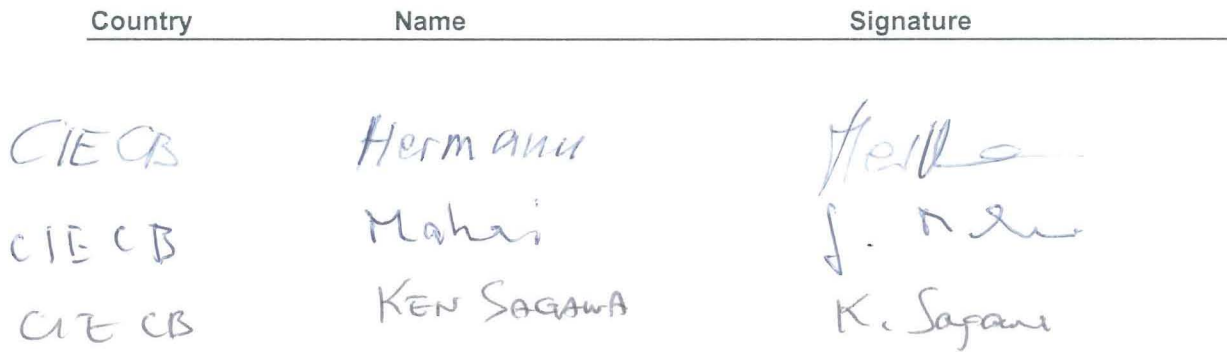 Country Name Signature
CIE CB Hermann
CIE CB
CIE CB KEN SAGAWA K. Sagawa